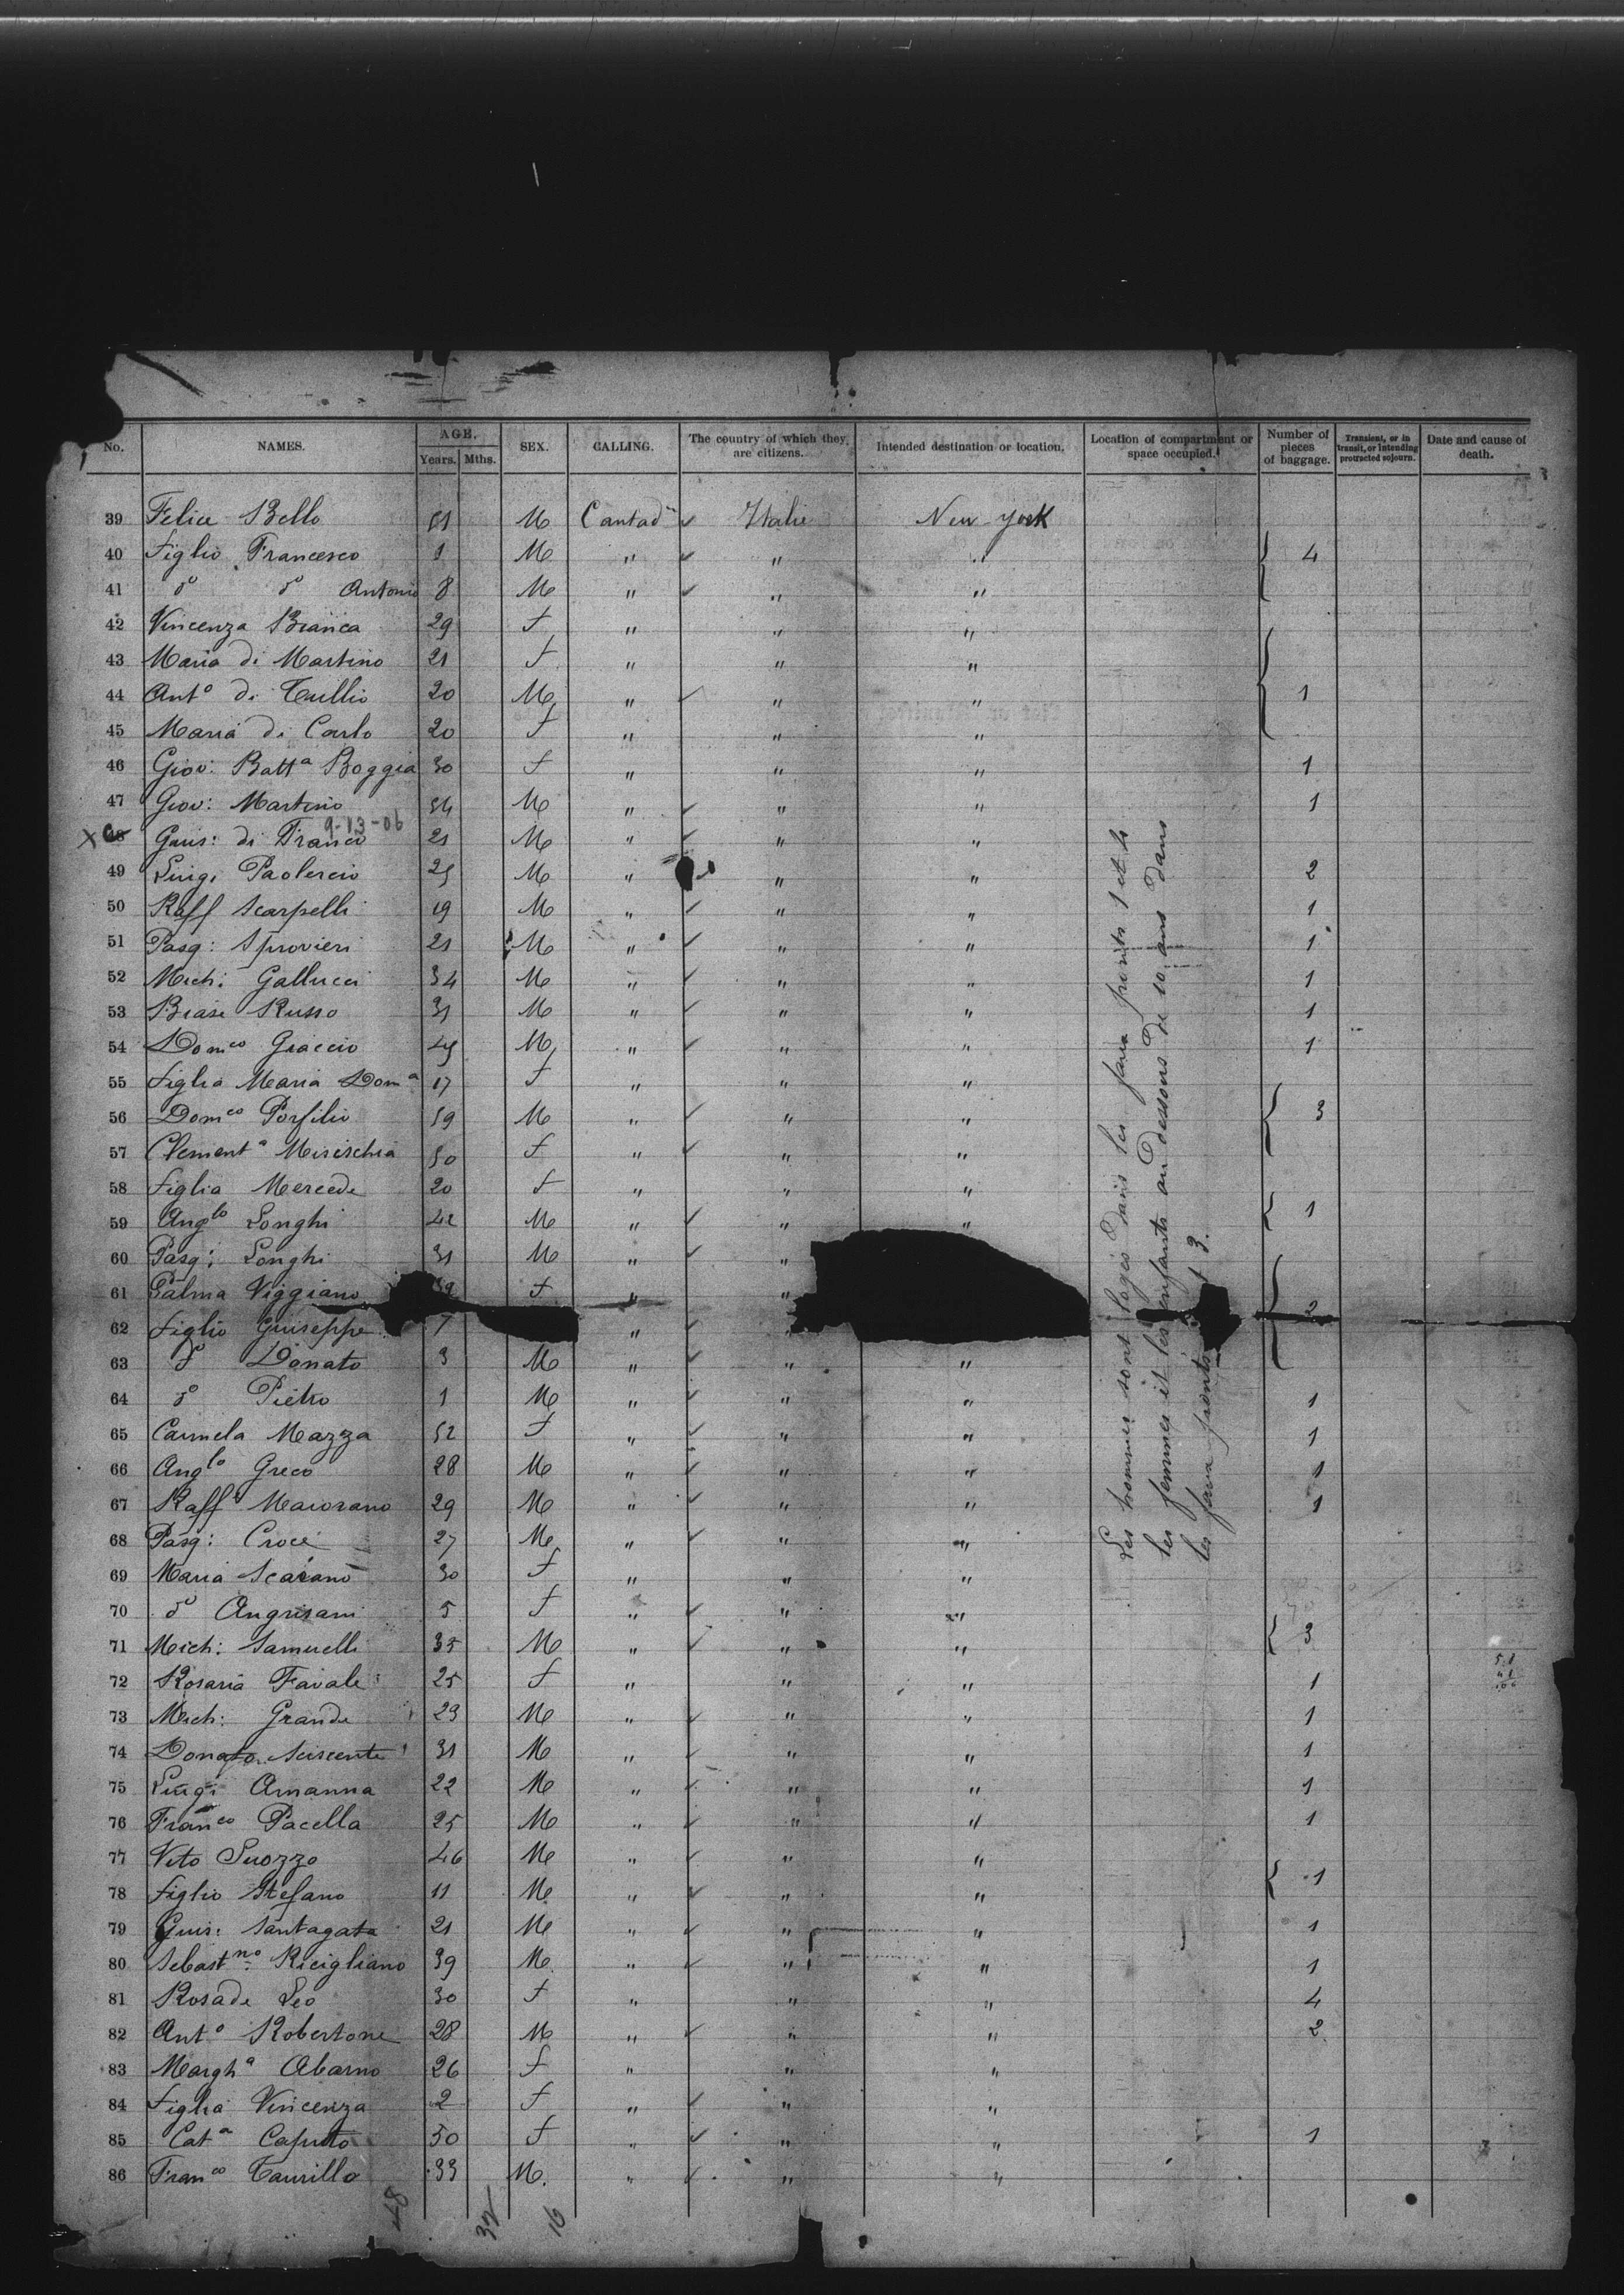 No. NAMES. AGE. Years. Mths. SEX. CALLING. The country of which they are citizens. Intended destination or location. Location of compartment or space occupied. Number of pieces of baggage. Transient, or in transit, or intending protracted sojourn. Date and cause of death.
39 Felice Bello 51 M Contad Italie New-York
40 figlio Francesco 1 M " " " 4
41 do do Antonio 8 M " " "
42 Vincenza Bianca 29 f " " "
43 Maria di Martino 21 f " " "
44 Anto di Tullio 20 M " " " 1
45 Maria di Carlo 20 f " " "
46 Giov: Batta Boggia 30 f " " " 1
47 Giov: Martino 34 M " " " 1
9-13-06
48 Guis: di Franco 21 M " " "
49 Luigi Paolercio 25 M " " " 2
50 Raff Scarpelli 19 M " " " 1
51 Pasq: Sprovieri 21 M " " " 1
52 Mich: Gallucci 34 M " " " 1
53 Biase Russo 31 M " " " 1
54 Domco Graccio 45 M " " " 1
55 figlia Maria Doma 17 f " " "
56 Domco Porfilio 59 M " " " 3
57 Clementa Miseischia 50 f " " "
58 figlia Mercede 20 f " " "
59 Anglo Longhi 42 M " " " 1
60 Pasq: Longhi 31 M " "
61 Palma Viggiano f " " 2
62 figlio Guiseppe 7 "
63 do Donato 3 M " " "
64 do Pietro 1 M " " " 1
65 Carmela Mazza 52 f " " " 1
66 Anglo Greco 28 M " " " 1
67 Raffe Maiorano 29 M " " " 1
68 Pasq: Croce 27 M " " "
69 Maria Scarano 30 f " " "
70 do Angrisani 5 f " " "
71 Mich: Samuelli 35 M " " " 3
72 Rosaria Favale 25 f " " " 1
73 Mich: Grande 23 M " " " 1
74 Donato Sciscente 31 M " " " 1
75 Luigi Amanna 22 M " " " 1
76 Franco Pacella 25 M " " " 1
77 Vito Suozzo 46 M " " "
78 figlio Stefano 11 M " " " 1
79 Guis: Santagata 21 M " " " 1
80 Sebastno Ricigliano 39 M " " " 1
81 Rosa de Leo 30 f " " " 4
82 Anto Robertone 28 M " " " 2
83 Margha Abarno 26 f " " "
84 figlia Vincenza 2 f " " "
85 Cata Caputo 50 f " " " 1
86 Franco Taurillo 33 M. " " "
Les hommes sont logés dans les faux ponts 1 et
les femmes et les enfants au dessous de 10 ans dans
les faux ponts 3.
48 32 16